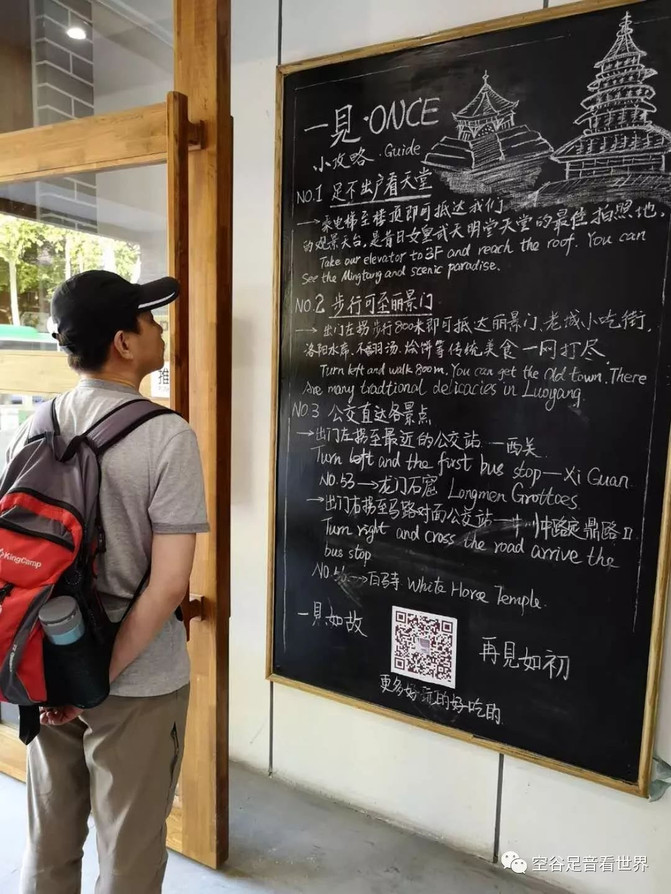 一見·ONCE
小攻略·Guide
NO.1 足不出户看天堂
→乘电梯至楼顶即可抵达我们
的观景天台,是昔日女皇武天明堂天堂的最佳拍照地.
Take our elevator to 3F and reach the roof. You can
See the Mingtang and scenic paradise.
NO.2 步行可至丽景门
→出门左拐步行800米即可抵达丽景门.老城小吃街,
洛阳水席、不翻汤、烩饼等传统美食一网打尽.
Turn left and walk 800m. You can get the Old town. There
Are many traditional delicacies in Luoyang
NO.3 公交直达各景点
→出门左拐至最近的公交站—西关
Turn left and the first bus stop—Xi Guan
NO.53→龙门石窟 Longmen Grottoes
→出门右拐至马路对面公交站—中州中路定鼎路口
Turn right and cross the road arrive the
bus stop
白马寺 White Horse Temple.
一見如故
再見如初
更多好玩的好吃的
推
KingCamp
空谷足音看世界